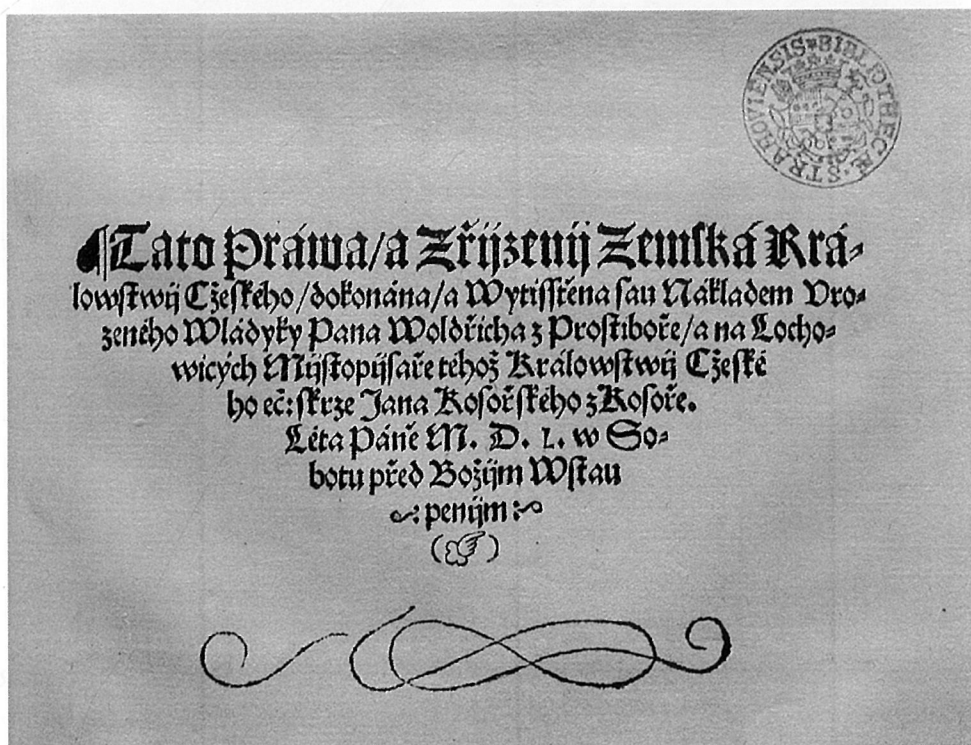 STRAHOVIENSIS * BIBLIOTHECÆ
¶ Tato Práwa/a Zřijzenij Zemſká Krá⸗
lowſtwij Cžeſkého/dokonána/a Wytiſſtěna ſau Nákladem Vro⸗
zeného Wládyky Pana Woldřicha z Proſtiboře/a na Locho⸗
wicých Mijſtopijſaře téhož Králowſtwij Cžeſké
ho ec̈: ſkrze Jana Koſořſkého z Koſoře.
Léta Páně M. D. L. w So⸗
botu před Božijm Wſtau
penijm: